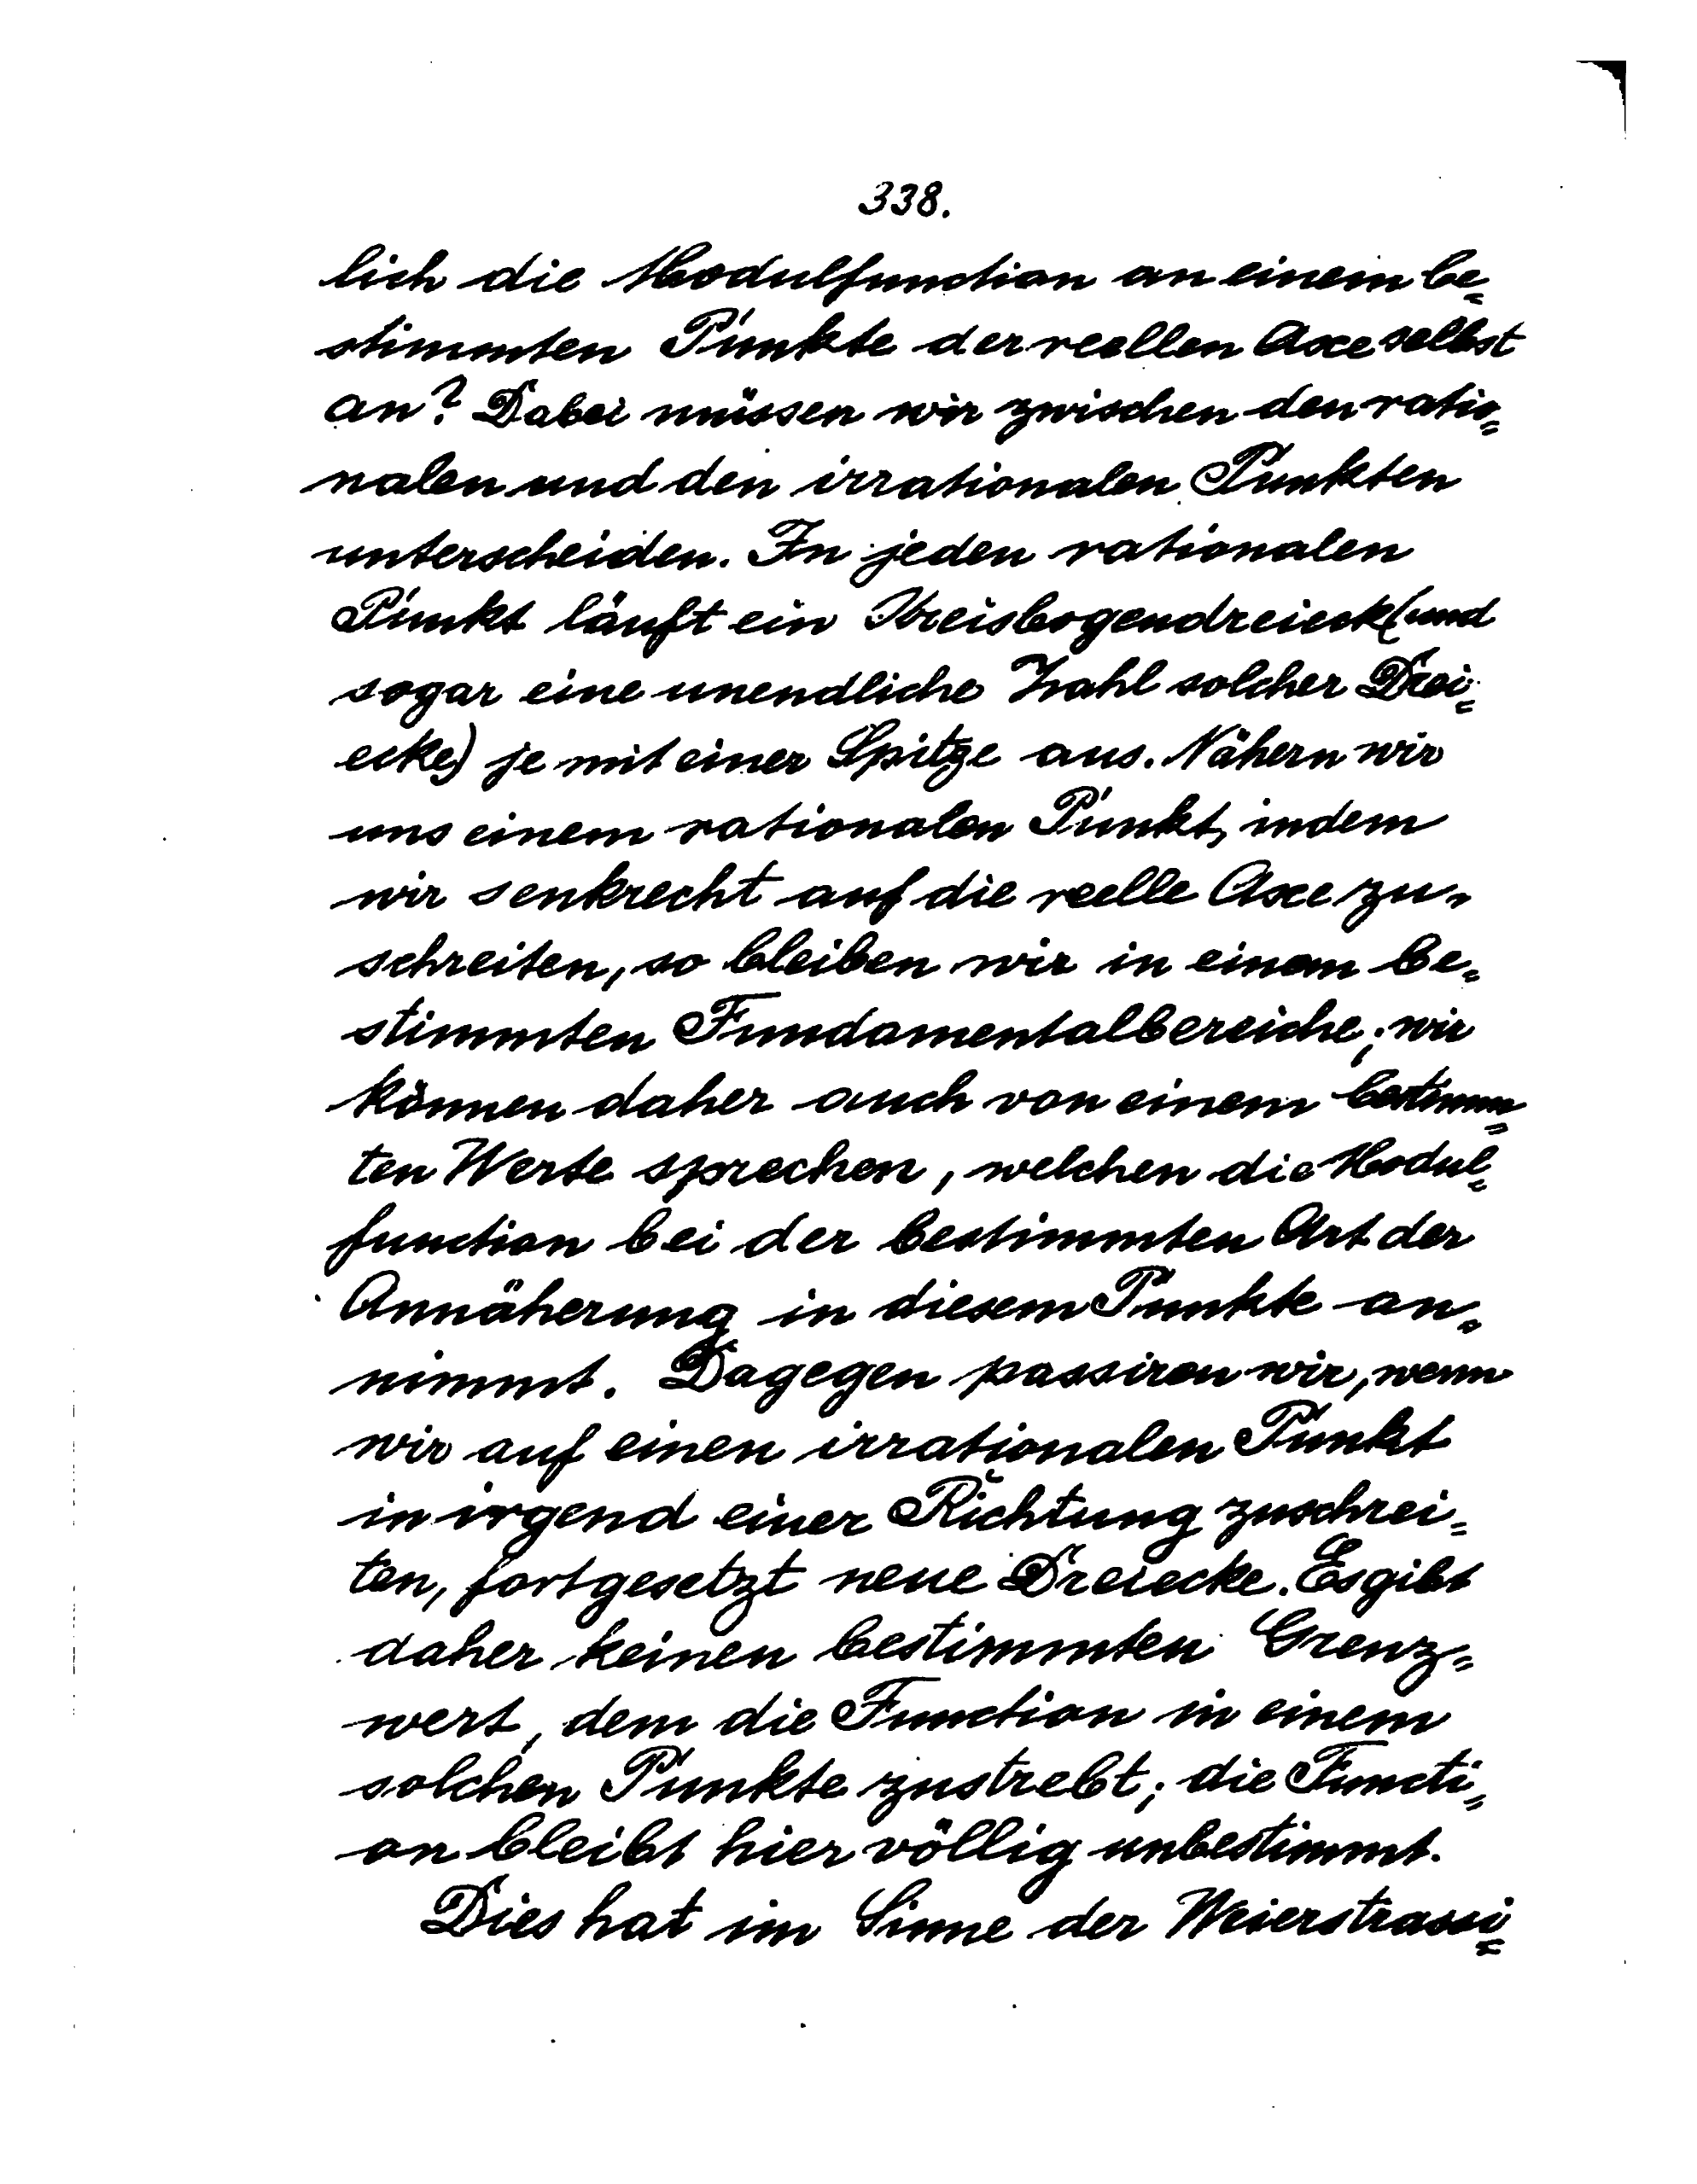 338.
lich die Modulfunction an einem be=
stimmten Punkte der reellen Axe selbst
an? Dabei müssen wir zwischen den ratio=
nalen und den irrationalen Punkten
unterscheiden. In jeden rationalen
Punkt läuft ein Kreisbogendreieck (und
sogar eine unendliche Zahl solcher Drei=
ecke) je mit einer Spitze aus. Nähern wir
uns einem rationalen Punkt, indem
wir senkrecht auf die reelle Axe zu=
schreiten, so bleiben wir in einem be=
stimmten Fundamentalbereiche; wir
können daher auch von einem bestimm=
ten Werte sprechen, welchen die Modul=
function bei der bestimmten Art der
Annäherung in diesem Punkte an=
nimmt. Dagegen passiren wir, wenn
wir auf einen irrationalen Punkt
in irgend einer Richtung zuschrei=
ten, fortgesetzt neue Dreiecke. Es gibt
daher keinen bestimmten Grenz=
wert, dem die Function in einem
solchen Punkte zustrebt; die Functi=
on bleibt hier völlig unbestimmt.
Dies hat im Sinne der Weierstrassi=